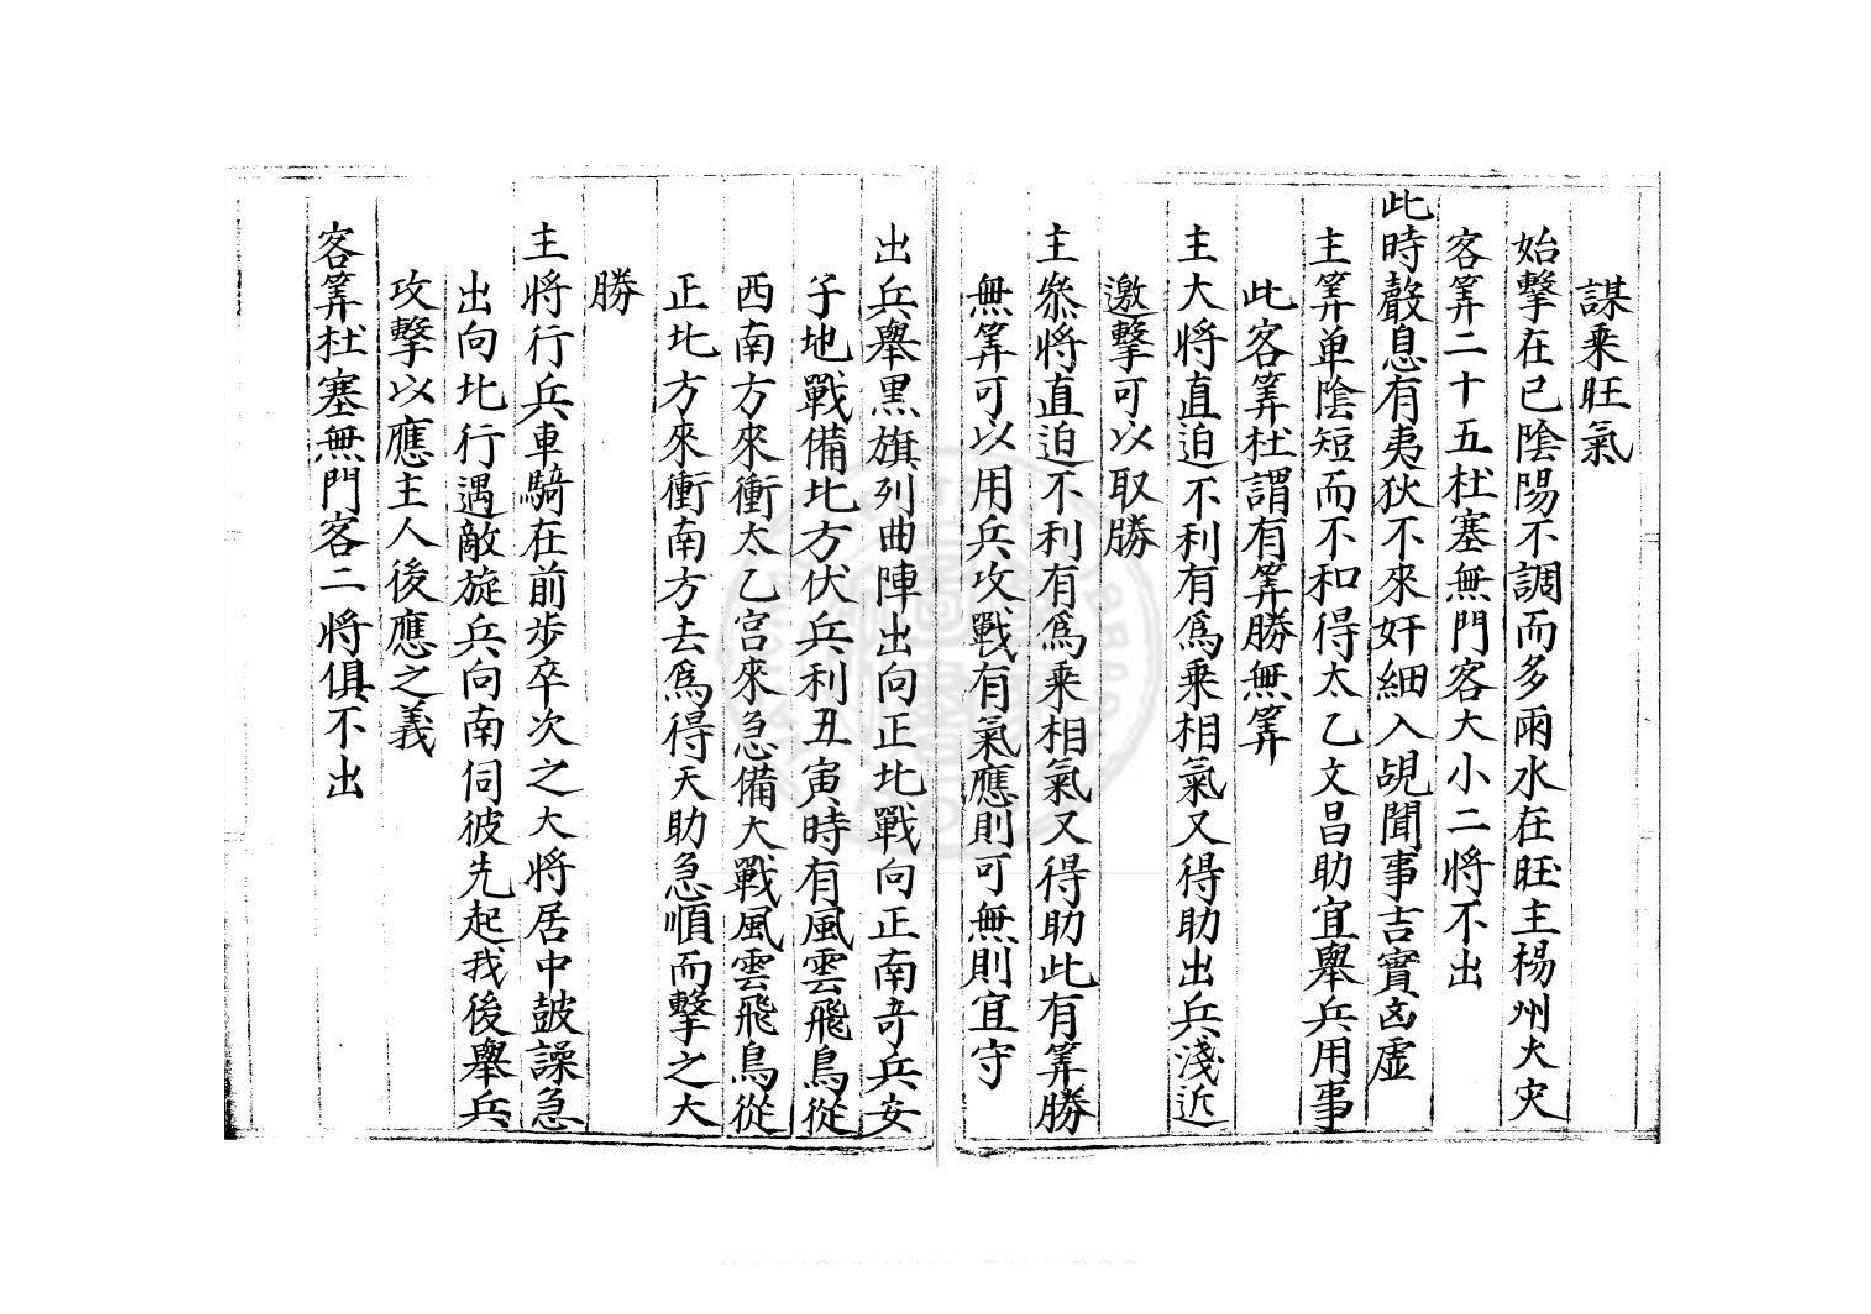 謀乘旺氣
始擊在巳陰陽不調而多雨水在旺主楊州火灾
客筭二十五杜塞無門客大小二將不出
此時聲息有夷狄不來奸細入覘聞事吉實凶虛
主筭單陰短而不和得太乙文昌助宜舉兵用事
此客筭杜謂有筭勝無筭
主大將直迫不利有爲乘相氣又得助出兵淺近
邀擊可以取勝
主叅將直迫不利有爲乘相氣又得助此有筭勝
無筭可以用兵攻戰有氣應則可無則宜守
出兵舉黑旗列曲陣出向正北戰向正南竒兵安
子地戰備北方伏兵利丑寅時有風雲飛鳥從
西南方來衝太乙宮來急備大戰風雲飛鳥從
正北方來衝南方去爲得天助急順而擊之大
勝
主將行兵車騎在前步卒次之大將居中鼓譟急
出向北行遇敵旋兵向南伺彼先起我後舉兵
攻擊以應主人後應之義
客筭杜塞無門客二將俱不出